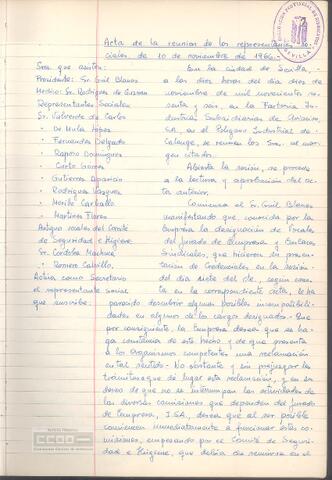 Acta de la reunion de los representantes so-
ciales de 10 de noviembre de 1966.-
Sres. que asisten:
Presidente: Sr. Guil Blanes
Medico: Sr. Rodriguez de
Representantes Sociales
Sr. Valverde de Carlos
" De Mula Lopez
" Fernandez Delgado
" Raposo Dominguez
" Curto
" Gutierrez Aparicio
" Rodriguez Vazquez
" Morillo Carballo
" Martinez Flores
Antiguo vocales del Comité
de Seguridad e Higiene
Sr. Cordoba Machuca
" Romero Calvillo,
Actúa como Secretario
el representante social
que suscribe.
En la ciudad de Sevilla,
a las diez horas del día diez de
noviembre de mil novecientos se-
senta y seis, en la Factoria In-
dustrial Subsidiarias de Aviacion,
SA, en el Poligono Industrial de
Calonge, se reunen los Sres. al mar-
gen citados.
Abierta la sesión, se procede
a la lectura y aprobación del ac-
ta anterior.
Comienza el Sr. Guil Blanes
manifestando que, conocida por la
Empresa la designación de Vocales
del Jurado de Empresa y Enlaces
Sindicales, que hicieron su presen-
tacion de Credenciales en la sesión
de dia siete del cte., segun cons-
ta en la correspondiente acta, le ha
parecido descubrir algunas posibles incompatibili-
dades en algunos de los cargos designados. Que
por consiguiente, la Empresa desea que se ha-
ga constancia de este hecho y de que presenta
a los Organismos competentes una reclamación
en tal sentido. No obstante y sin prejuzgar los
trámites que de lugar esta reclamación, y en su
deseo de que no se interrumpan las actividades de
las diversas comisiones que dependen del Jurado
de Empresa, ISA, desea que al ser posible
comiencen inmediatamente a funcionar estas co-
misiones, empezando por el Comité de Seguri-
dad e Higiene, que debia de reunirse en el
CCOO
SEVILLA